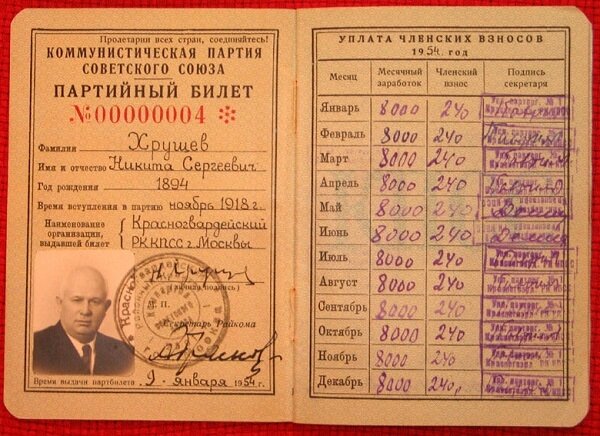 Пролетарии всех стран, соединяйтесь!
КОММУНИСТИЧЕСКАЯ ПАРТИЯ
СОВЕТСКОГО СОЮЗА
ПАРТИЙНЫЙ БИЛЕТ
№ 00000004
Фамилия Хрущев
Имя и отчество Никита Сергеевич
Год рождения 1894
Время вступления в партию ноябрь 1918 г.
Наименование организации, выдавшей билет Красногвардейский
РК КПСС г. Москвы
(личная подпись)
М. П.
Секретарь Райкома
Время выдачи партбилета 9 января 1954 г.
УПЛАТА ЧЛЕНСКИХ ВЗНОСОВ
1954 год
Месяц Месячный заработок Членский взнос Подпись секретаря
Январь 8000 240
Февраль 8000 240
Март 8000 240
Апрель 8000 240
Май 8000 240
Июнь 8000 240
Июль 8000 240
Август 8000 240
Сентябрь 8000 240
Октябрь 8000 240
Ноябрь 8000 240
Декабрь 8000 240